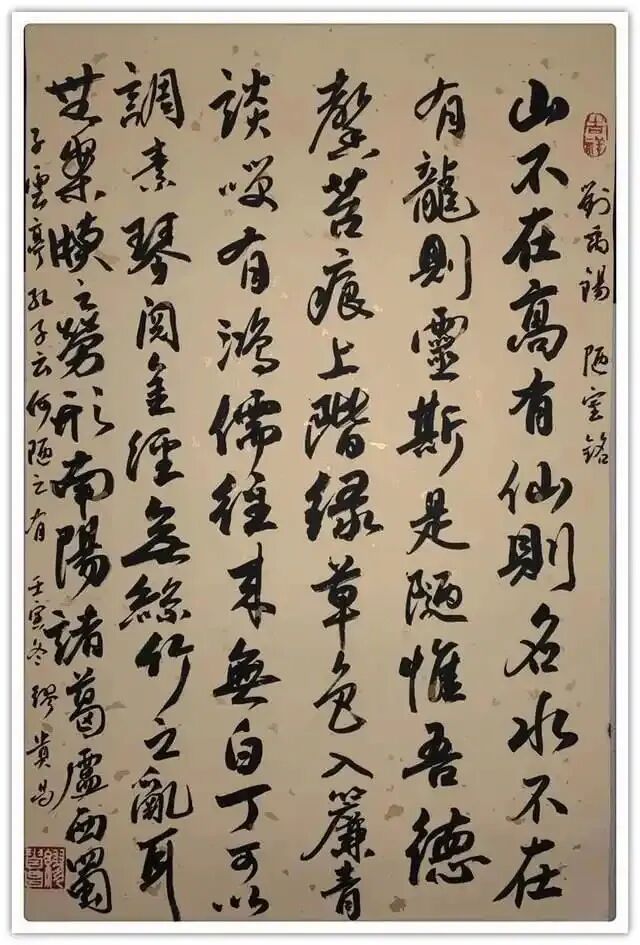 吉祥
劉禹錫 陋室銘
山不在高有仙則名水不在
有龍則靈斯是陋惟吾德
馨苔痕上階緑草色入簾青
談咲有鴻儒往来無白丁可以
調素琴閱金經無絲竹之亂耳
無案牘之勞形南陽諸葛廬西蜀
子雲亭孔子云何陋之有 壬寅冬 繆貴昌